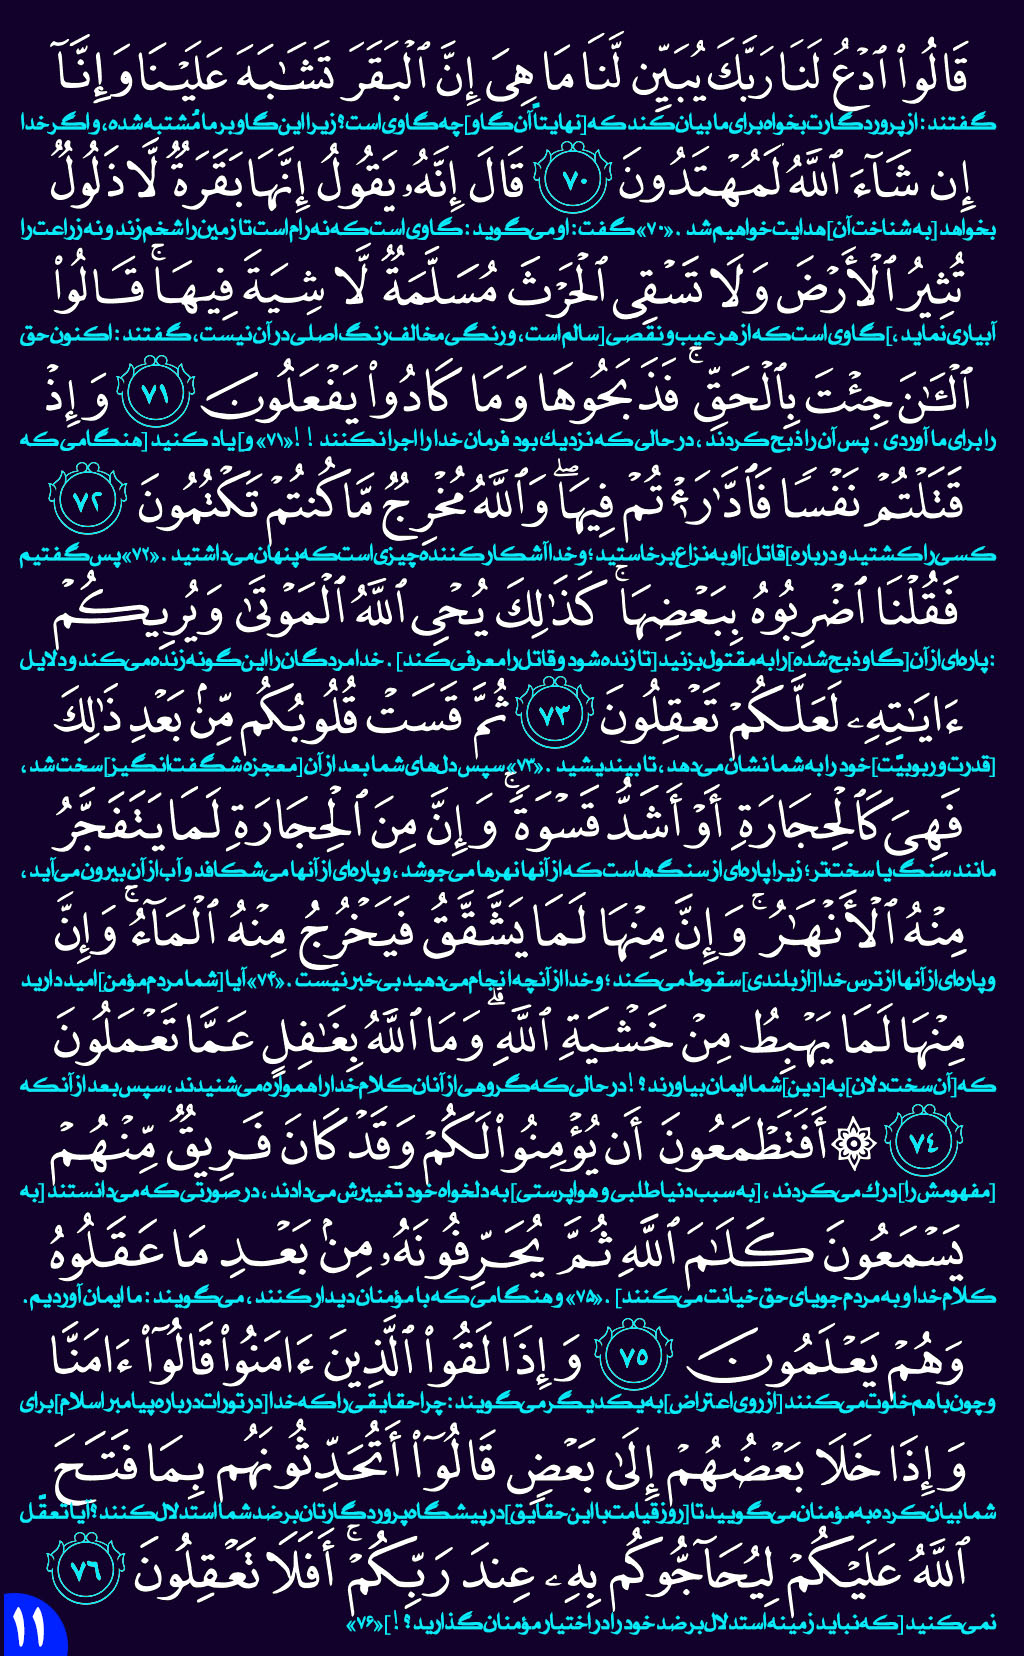 قَالُوا۟ ٱدْعُ لَنَا رَبَّكَ يُبَيِّن لَّنَا مَا هِىَ إِنَّ ٱلْبَقَرَ تَشَـٰبَهَ عَلَيْنَا وَإِنَّآ
گفتند: از پروردگارت بخواه برای ما بیان کند که [نهایتاً آن گاو] چه گاوی است؟ زیرا این گاو بر ما مُشتبه شده، و اگر خدا
إِن شَآءَ ٱللَّهُ لَمُهْتَدُونَ ٧٠ قَالَ إِنَّهُۥ يَقُولُ إِنَّهَا بَقَرَةٌ لَّا ذَلُولٌ
بخواهد [به شناخت آن] هدایت خواهیم شد. «۷۰» گفت: او می‌گوید: گاوی است که نه رام است تا زمین را شخم زند و نه زراعت را
تُثِيرُ ٱلْأَرْضَ وَلَا تَسْقِى ٱلْحَرْثَ مُسَلَّمَةٌ لَّا شِيَةَ فِيهَا ۚ قَالُوا۟
آبیاری نماید، ]گاوی است که از هر عیب و نقصی [سالم است، و رنگی مخالف رنگ اصلی در آن نیست، گفتند: اکنون حق
ٱلْـَٔـٰنَ جِئْتَ بِٱلْحَقِّ ۚ فَذَبَحُوهَا وَمَا كَادُوا۟ يَفْعَلُونَ ٧١ وَإِذْ
را برای ما آوردی. پس آن را ذبح کردند، در حالی که نزدیك بود فرمان خدا را اجرا نکنند!! «۷۱» و] یاد کنید [هنگامی که
قَتَلْتُمْ نَفْسًا فَٱدَّٰرَْٰٔتُمْ فِيهَا ۖ وَٱللَّهُ مُخْرِجٌ مَّا كُنتُمْ تَكْتُمُونَ ٧٢
کسی را کشتید و درباره] قاتل [او به نزاع برخاستید؛ و خدا آشکار کننده چیزی است که پنهان می‌داشتید. «۷۲» پس گفتیم
فَقُلْنَا ٱضْرِبُوهُ بِبَعْضِهَا ۚ كَذَٰلِكَ يُحْىِ ٱللَّهُ ٱلْمَوْتَىٰ وَيُرِيكُمْ
: پاره‌ای از آن [گاو ذبح شده] را به مقتول بزنید [تا زنده شود و قاتل را معرفی کند]. خدا مردگان را این گونه زنده می‌کند و دلایل
ءَايَـٰتِهِۦ لَعَلَّكُمْ تَعْقِلُونَ ٧٣ ثُمَّ قَسَتْ قُلُوبُكُم مِّنۢ بَعْدِ ذَٰلِكَ
[قدرت و ربوبیّت] خود را به شما نشان می‌دهد، تا بیندیشید. «۷۳» سپس دل‌های شما بعد از آن [معجزه شگفت‌انگیز] سخت شد،
فَهِىَ كَٱلْحِجَارَةِ أَوْ أَشَدُّ قَسْوَةً ۚ وَإِنَّ مِنَ ٱلْحِجَارَةِ لَمَا يَتَفَجَّرُ
مانند سنگ یا سخت‌تر؛ زیرا پاره‌ای از سنگ‌هاست که از آنها نهرها می‌جوشد، و پاره‌ای از آنها می‌شکافد و آب از آن بیرون می‌آید،
مِنْهُ ٱلْأَنْهَـٰرُ ۚ وَإِنَّ مِنْهَا لَمَا يَشَّقَّقُ فَيَخْرُجُ مِنْهُ ٱلْمَآءُ ۚ وَإِنَّ
و پاره‌ای از آنها از ترس خدا [از بلندی] سقوط می‌کند؛ و خدا از آنچه انجام می‌دهید بی‌خبر نیست. «۷۴» آیا [شما مردم مؤمن] امید دارید
مِنْهَا لَمَا يَهْبِطُ مِنْ خَشْيَةِ ٱللَّهِ ۗ وَمَا ٱللَّهُ بِغَـٰفِلٍ عَمَّا تَعْمَلُونَ
که [آن سخت دلان] به [دین] شما ایمان بیاورند؟! در حالی که گروهی از آنان کلام خدا را همواره می‌شنیدند، سپس بعد از آنکه
٧٤ ۞ أَفَتَطْمَعُونَ أَن يُؤْمِنُوا۟ لَكُمْ وَقَدْ كَانَ فَرِيقٌ مِّنْهُمْ
[مفهومش را] درك می‌کردند، [به سبب دنیاطلبی و هواپرستی] به دلخواه خود تغییرش می‌دادند، در صورتی که می‌دانستند [به
يَسْمَعُونَ كَلَـٰمَ ٱللَّهِ ثُمَّ يُحَرِّفُونَهُۥ مِنۢ بَعْدِ مَا عَقَلُوهُ
کلام خدا و به مردم جویای حق خیانت می‌کنند]. «۷۵» و هنگامی که با مؤمنان دیدار کنند، می‌گویند: ما ایمان آوردیم.
وَهُمْ يَعْلَمُونَ ٧٥ وَإِذَا لَقُوا۟ ٱلَّذِينَ ءَامَنُوا۟ قَالُوٓا۟ ءَامَنَّا
و چون با هم خلوت می‌کنند [از روی اعتراض] به یکدیگر می‌گویند: چرا حقایقی را که خدا [در تورات درباره پیامبر اسلام] برای
وَإِذَا خَلَا بَعْضُهُمْ إِلَىٰ بَعْضٍ قَالُوٓا۟ أَتُحَدِّثُونَهُم بِمَا فَتَحَ
شما بیان کرده به مؤمنان می‌گویید تا [روز قیامت با این حقایق] در پیشگاه پروردگارتان بر ضد شما استدلال کنند؟ آیا تعقّل
ٱللَّهُ عَلَيْكُمْ لِيُحَآجُّوكُم بِهِۦ عِندَ رَبِّكُمْ ۚ أَفَلَا تَعْقِلُونَ ٧٦
نمی‌کنید [که نباید زمینه استدلال بر ضد خود را در اختیار مؤمنان گذارید؟!] «۷۶»
١١